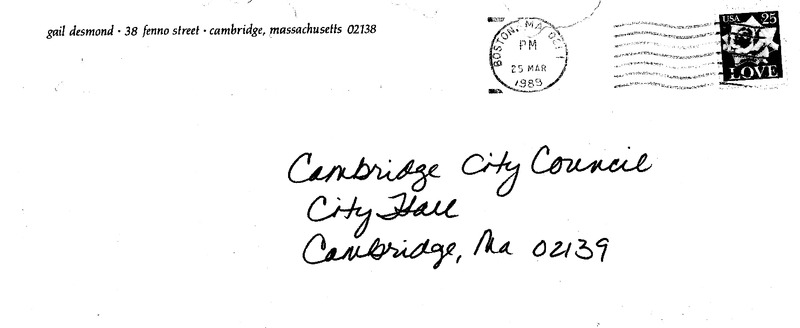 gail desmond · 38 fenno street · cambridge, massachusetts 02138
BOSTON, MA
PM
25 MAR
1989
USA 25
LOVE
Cambridge City Council
City Hall
Cambridge, Ma 02139